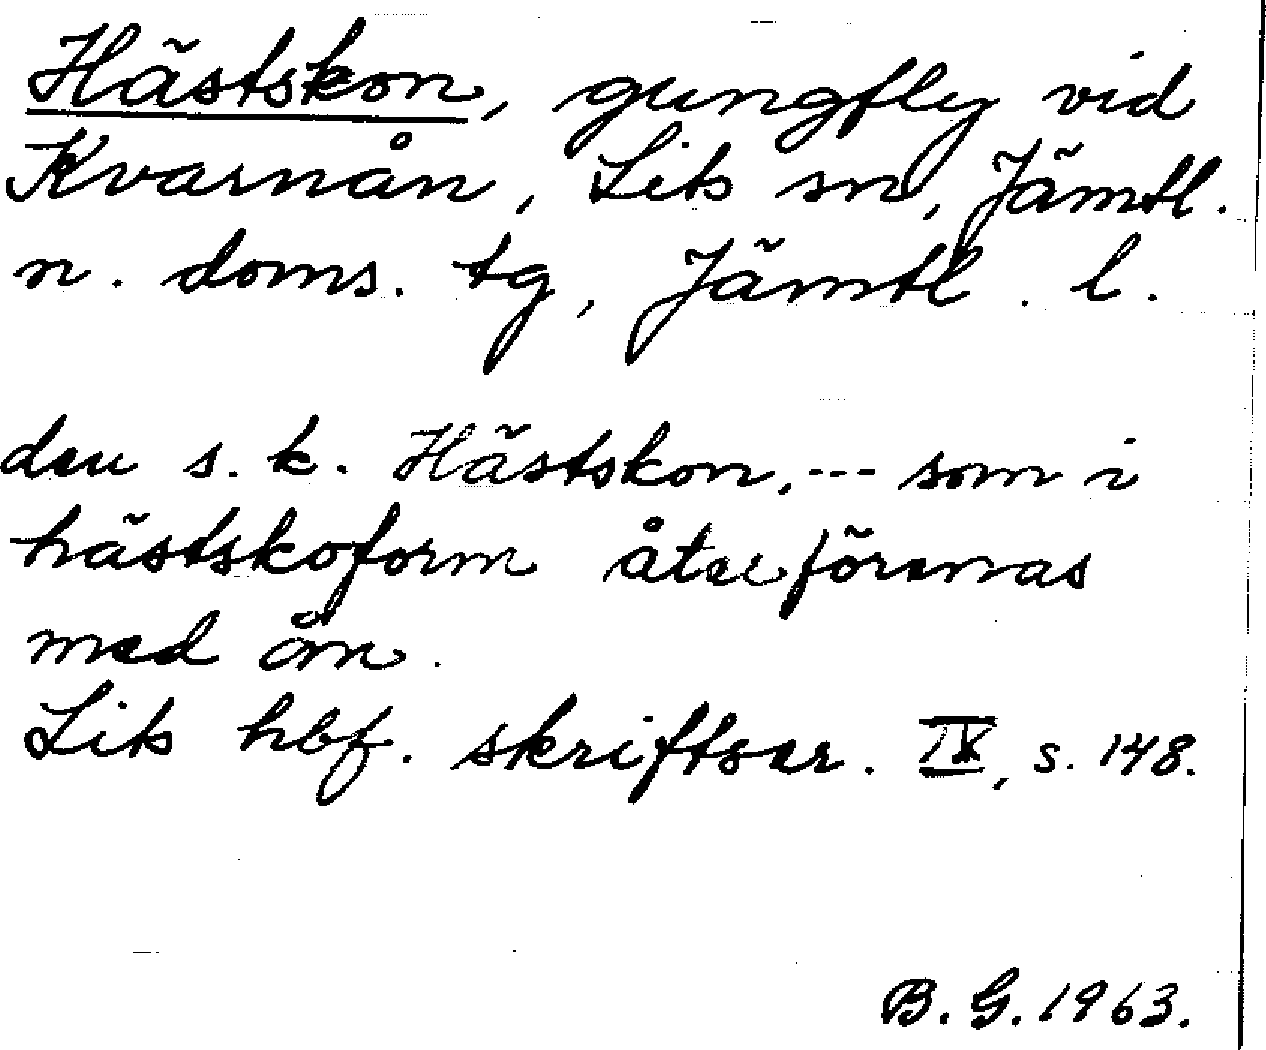 Hästskon, gungfly vid
Kvarnån, Lits sn, Jämtl.
n. doms. tg, Jämtl. l.
den s.k. Hästskon, --- som i
hästskoform återförenas
med ån.
Lits hbf. skriftser. IV, s. 148.
B. G. 1963.